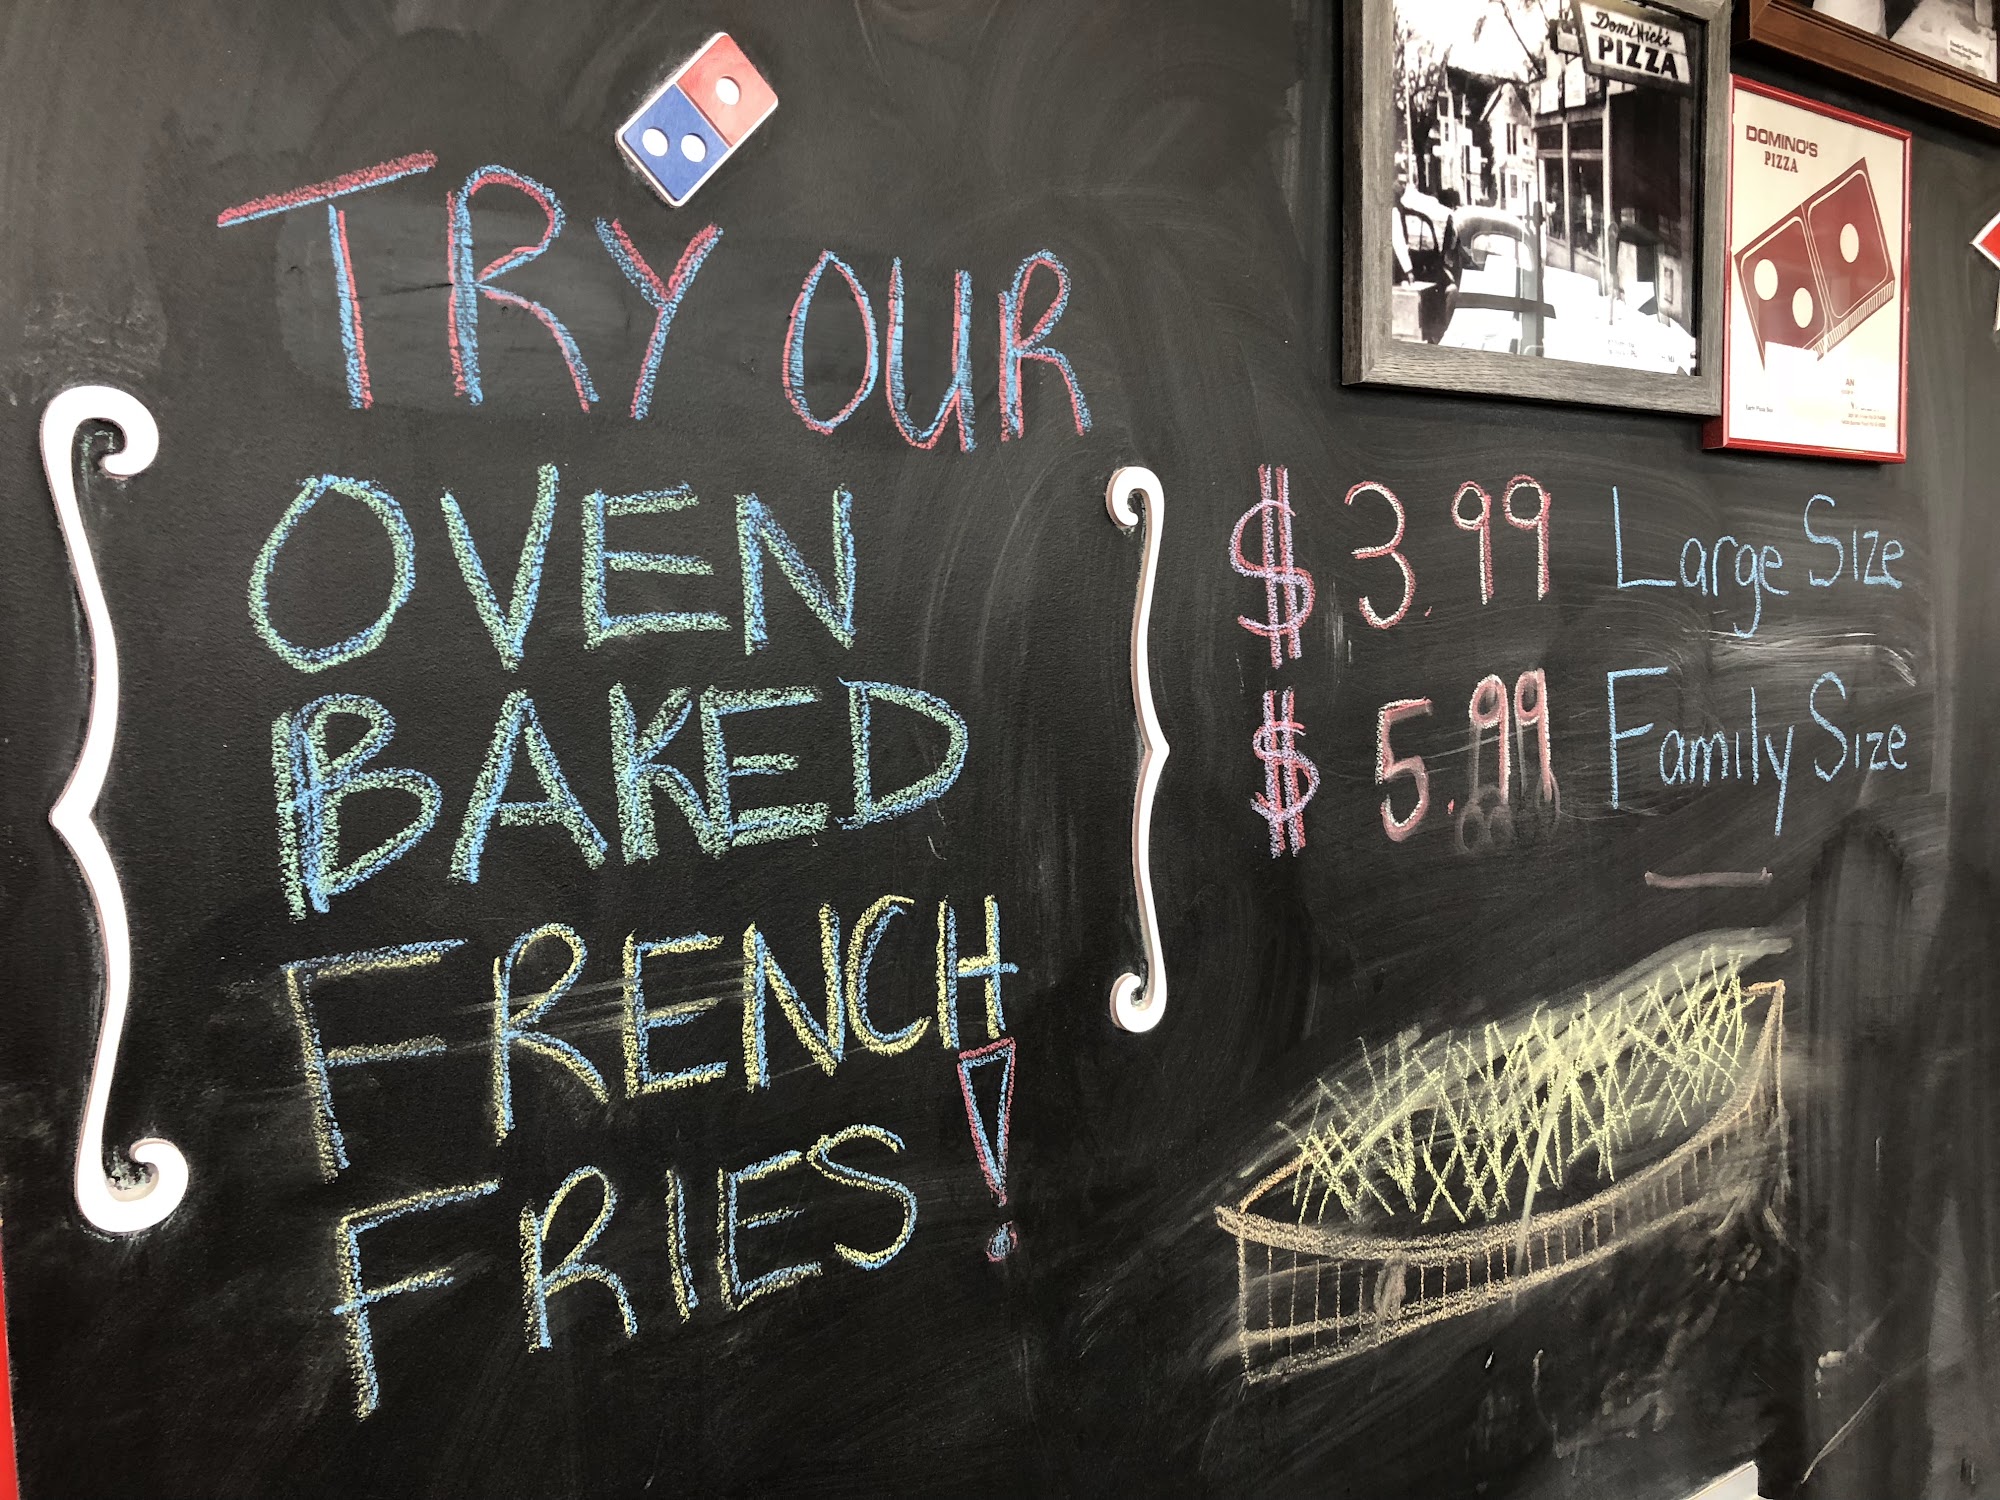 TRY OUR
OVEN
BAKED
FRENCH
FRIES!
$3.99 Large Size
$5.99 Family Size
DomiNick's
PIZZA
DOMINO'S
PIZZA
AN